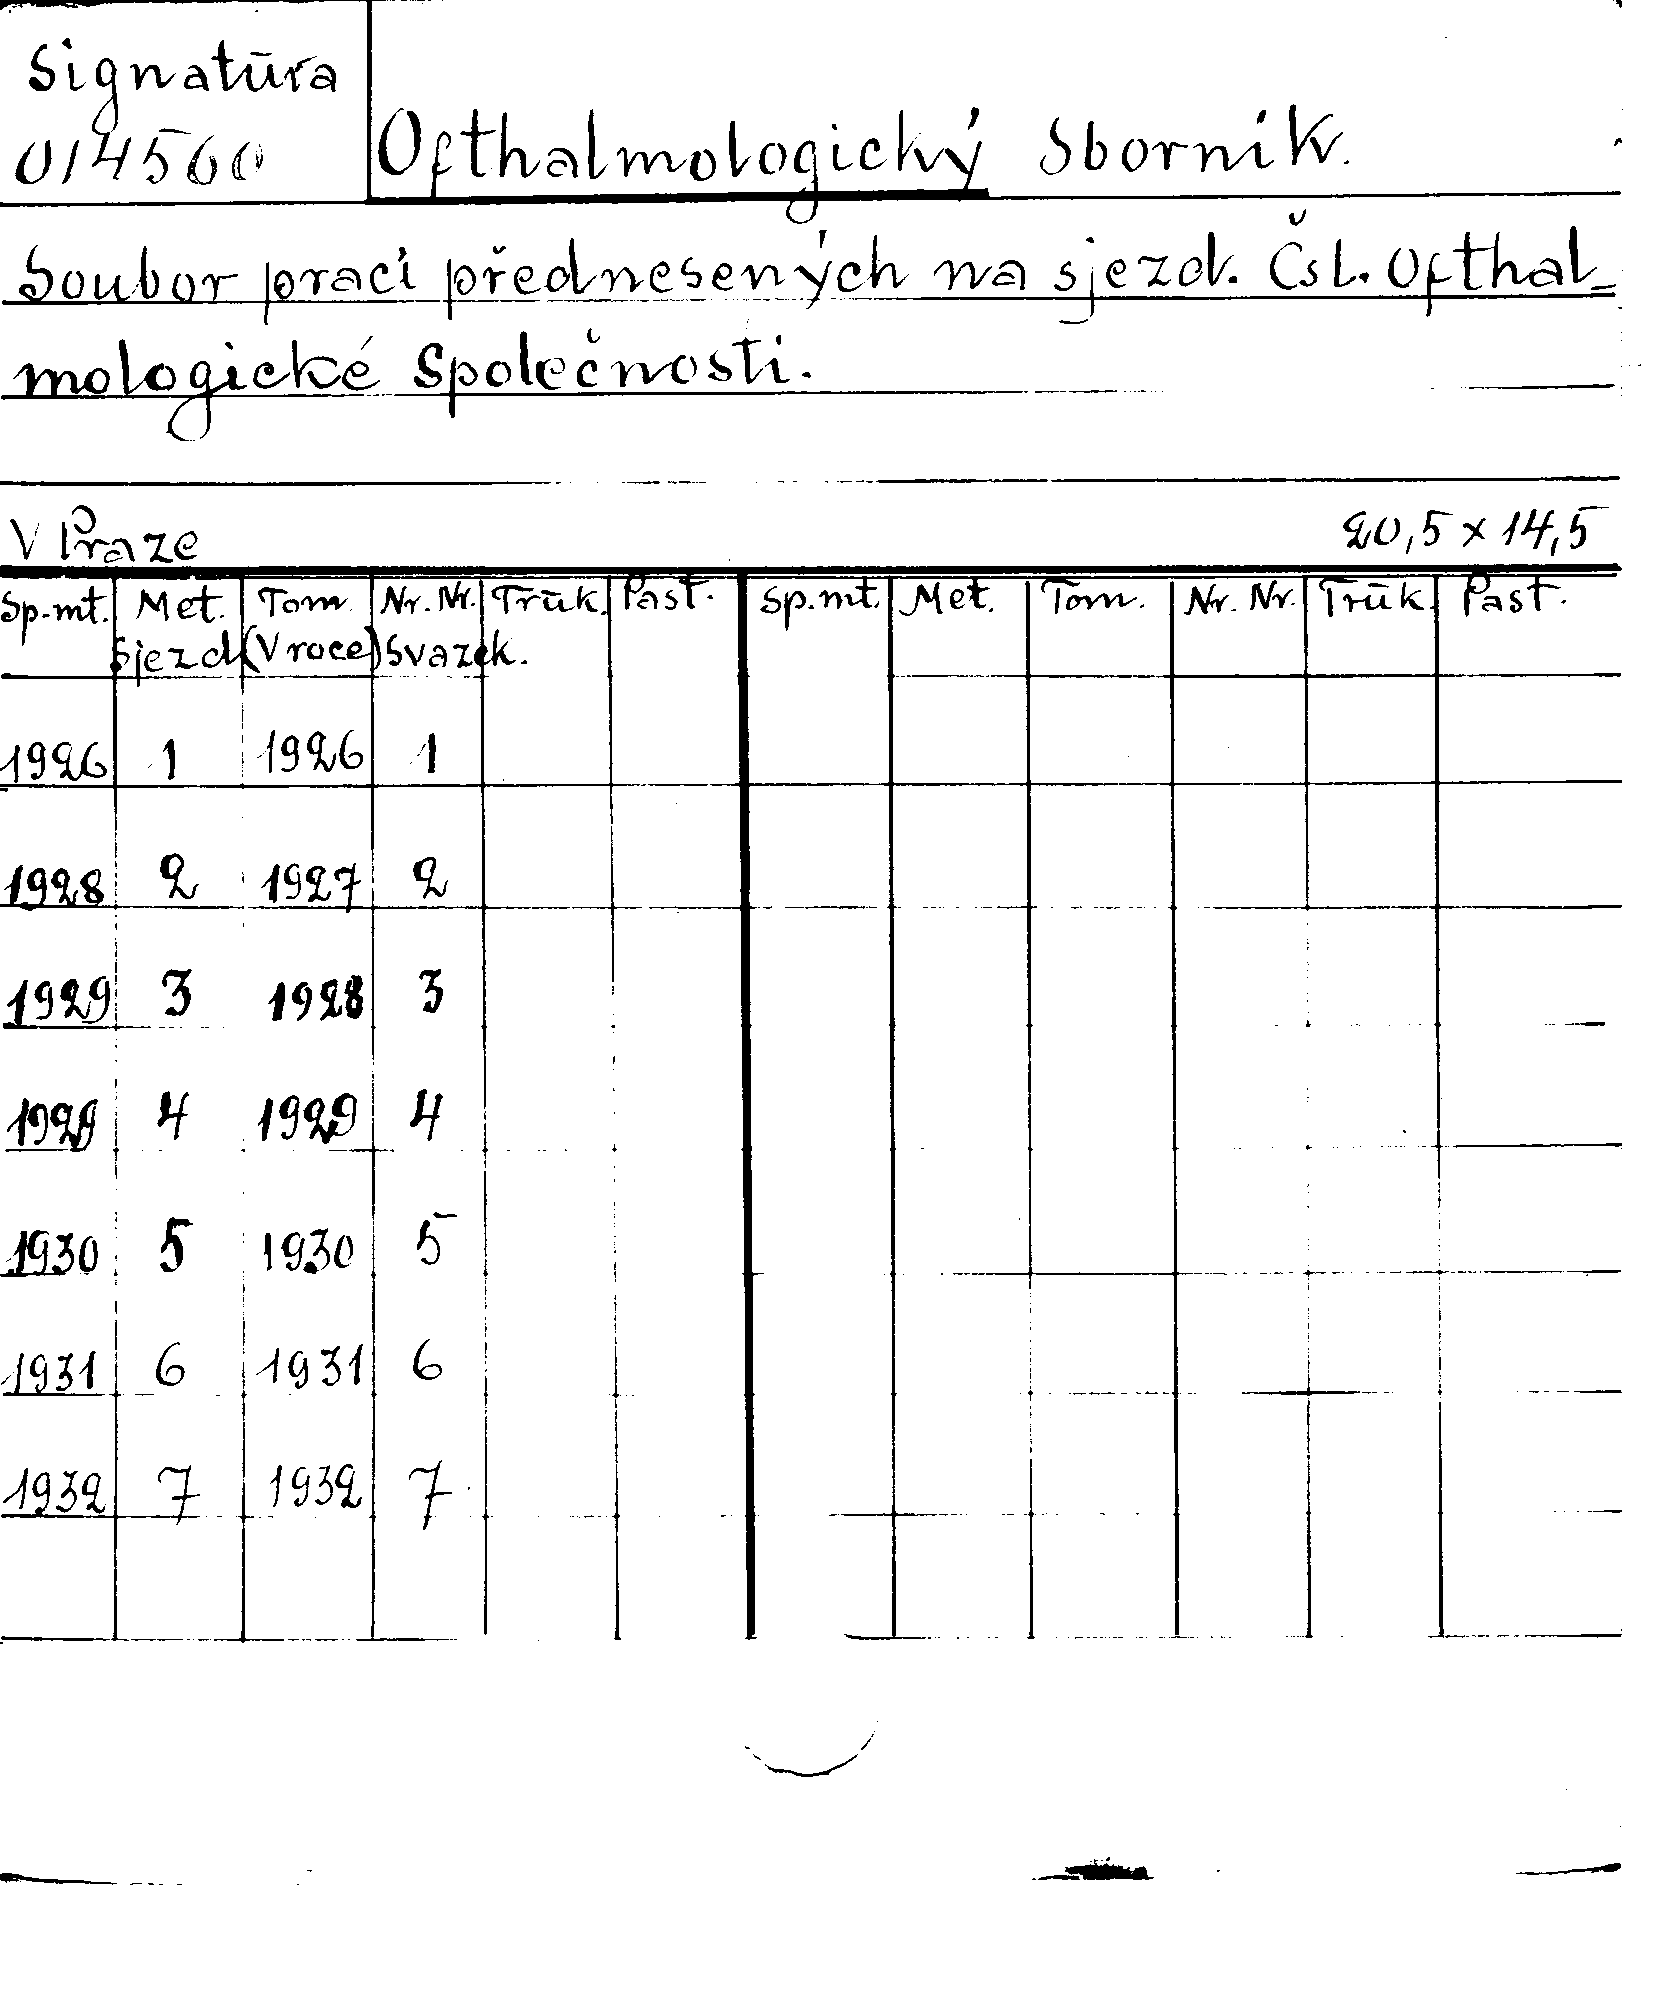 Signatūra
014560
Ofthalmologický Sborník.
Soubor prací přednesených na sjezd. Čsl. Ofthal-
mologické Společnosti.
V Praze 20,5 x 14,5
Sp.mt. Met. Tom. Nr. Nr. Trūk. Past. Sp.mt. Met. Tom. Nr. Nr. Trūk. Past.
Sjezd (V roce) Svazek.
1926 1 1926 1
1928 2 1927 2
1929 3 1928 3
1929 4 1929 4
1930 5 1930 5
1931 6 1931 6
1932 7 1932 7